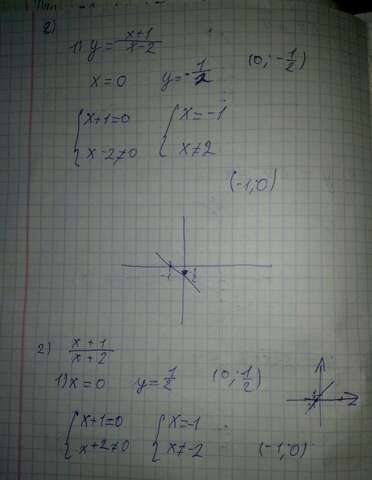 2)
1) y = x+1 / x-2
x=0 y=-1/2 (0; -1/2)
{ x+1=0 { x=-1
{ x-2≠0 { x≠2
(-1;0)
-1
2) x+1 / x+2
1) x=0 y=1/2 (0; 1/2)
{ x+1=0 { x=-1
{ x+2≠0 { x≠-2 (-1;0)